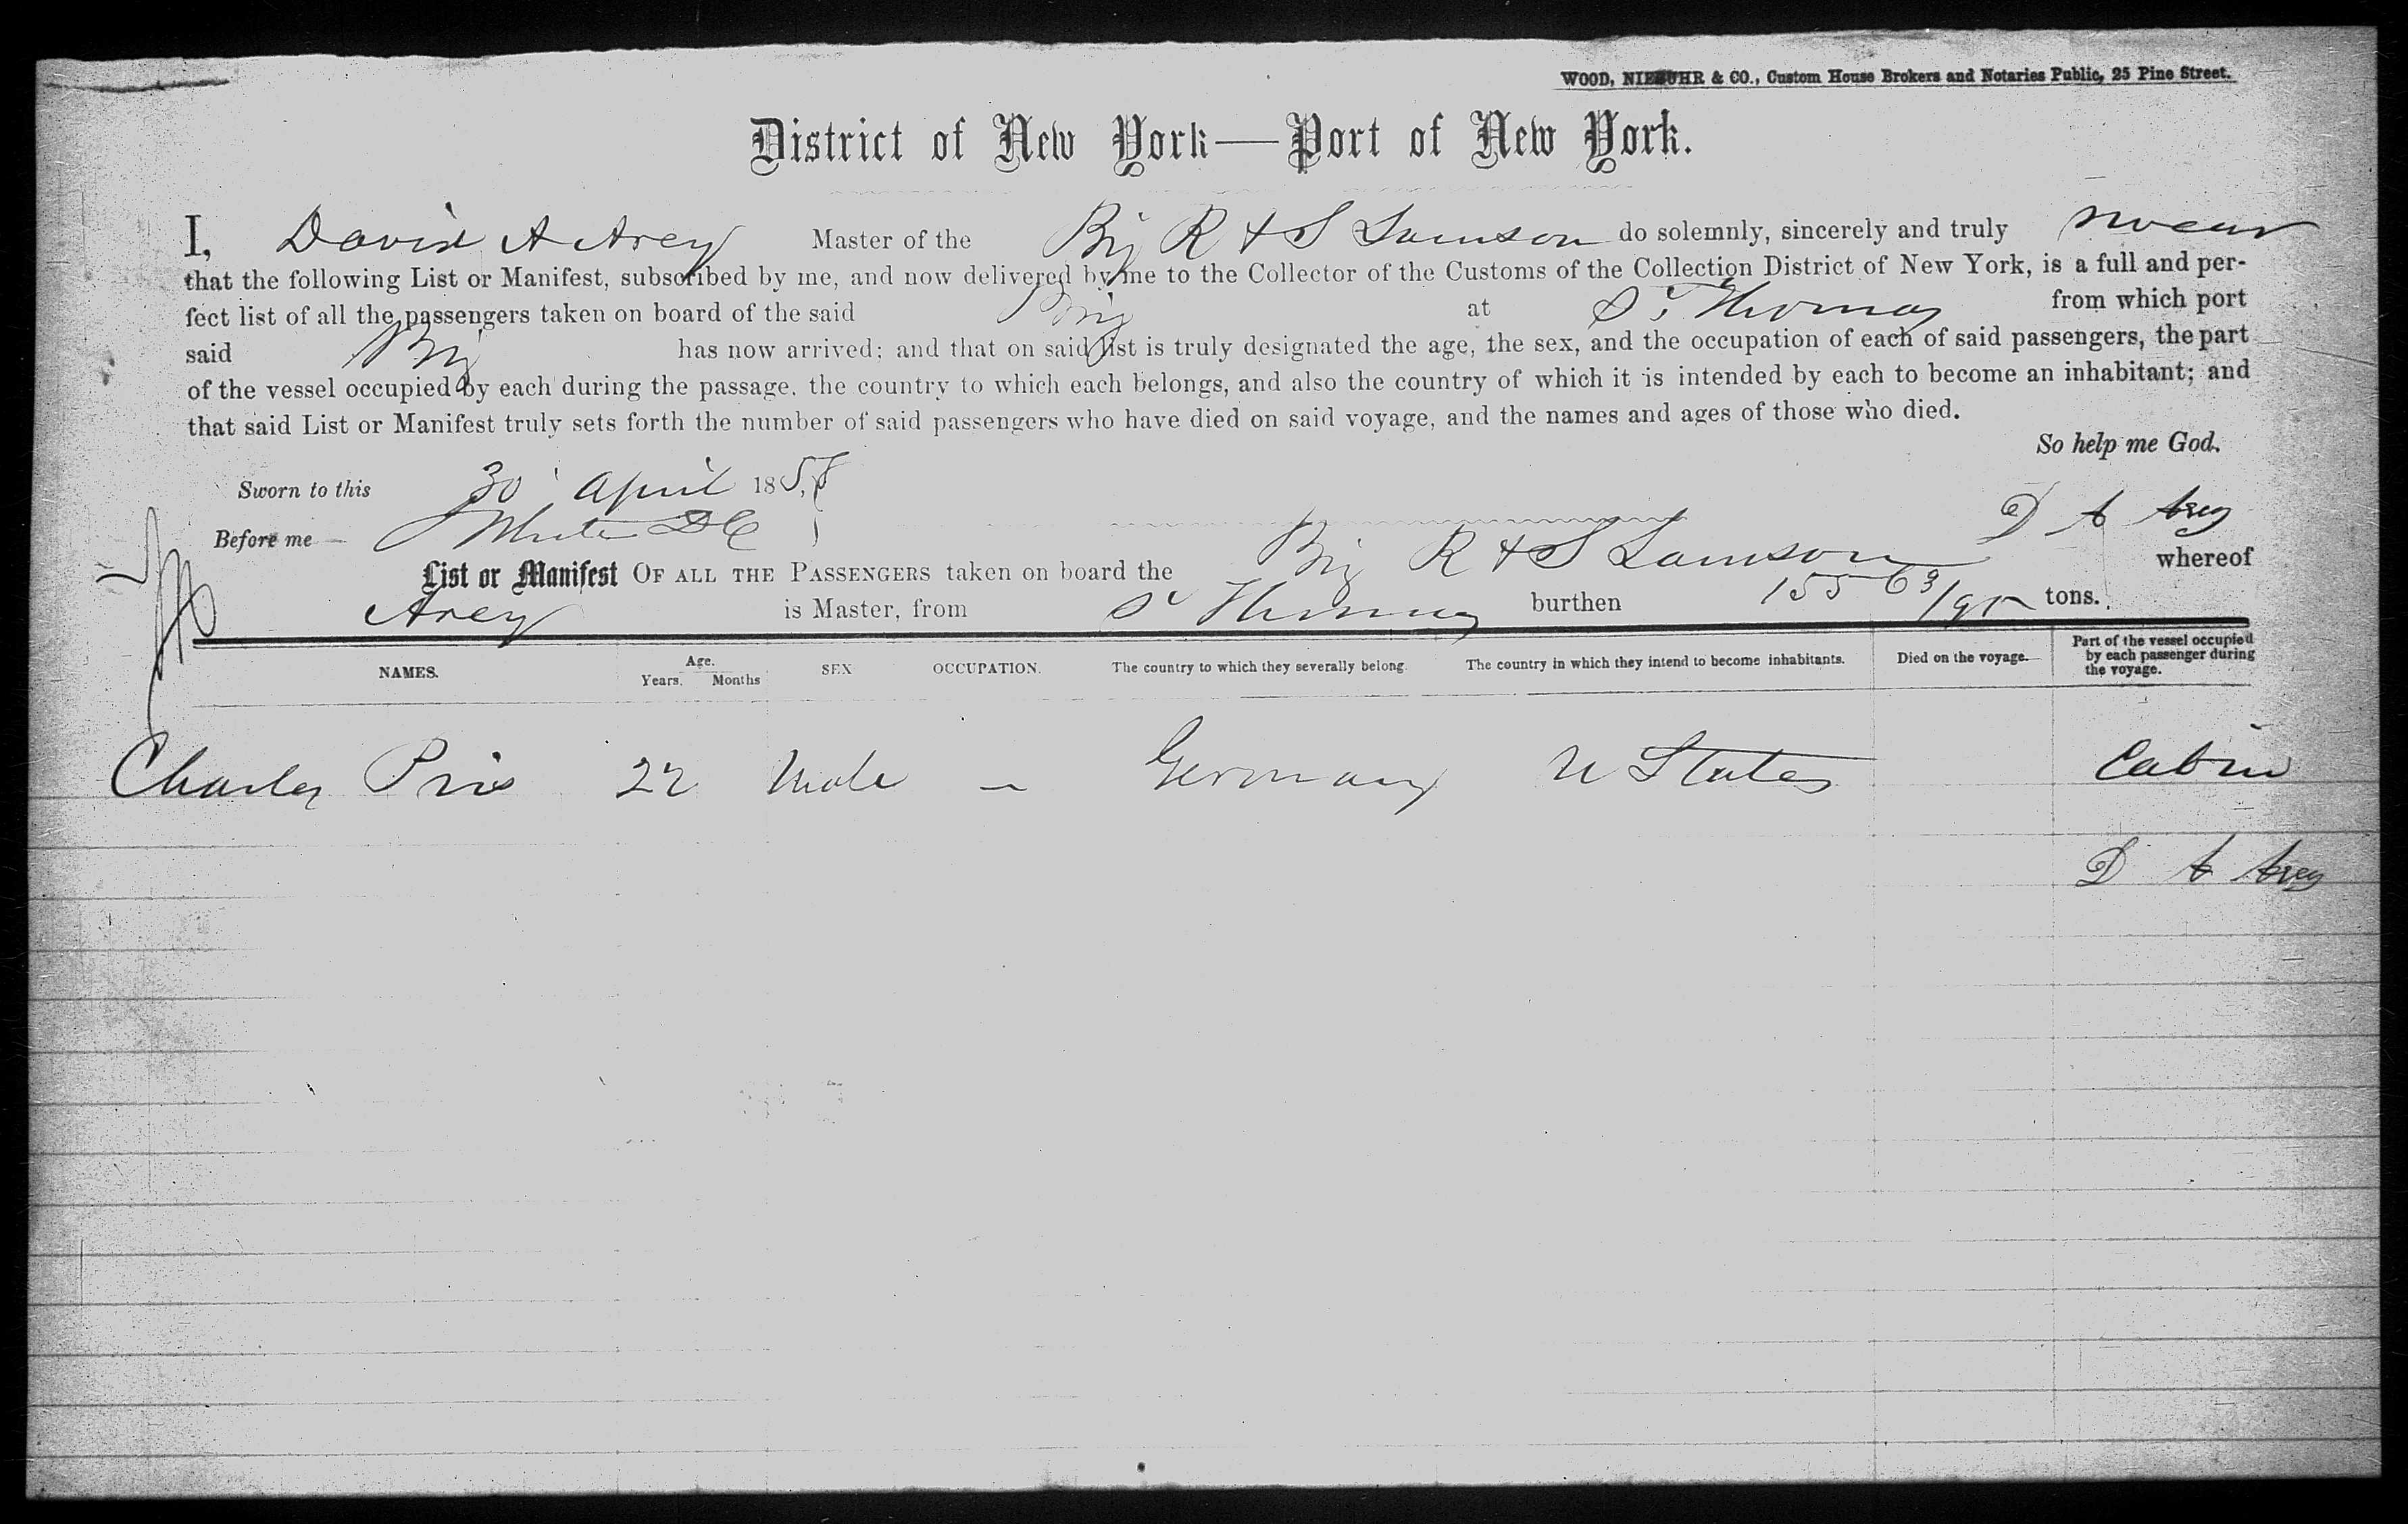 WOOD, NIEBUHR & CO., Custom House Brokers and Notaries Public, 25 Pine Street.
District of New York—Port of New York.
I, David A Arey Master of the Brig R & S Samson do solemnly, sincerely and truly swear
that the following List or Manifest, subscribed by me, and now delivered by me to the Collector of the Customs of the Collection District of New York, is a full and per-
fect list of all the passengers taken on board of the said Brig at St Thomas from which port
said Brig has now arrived; and that on said list is truly designated the age, the sex, and the occupation of each of said passengers, the part
of the vessel occupied by each during the passage, the country to which each belongs, and also the country of which it is intended by each to become an inhabitant; and
that said List or Manifest truly sets forth the number of said passengers who have died on said voyage, and the names and ages of those who died.
So help me God.
Sworn to this 30 April 1858
Before me D A Arey
List or Manifest OF ALL THE PASSENGERS taken on board the Brig R & S Samson whereof
Arey is Master, from St Thomas burthen 155 63/95 tons.
NAMES. Age. Years. Months SEX OCCUPATION. The country to which they severally belong. The country in which they intend to become inhabitants. Died on the voyage. Part of the vessel occupied by each passenger during the voyage.
Charles 22 Male — Germany U States Cabin
D A Arey